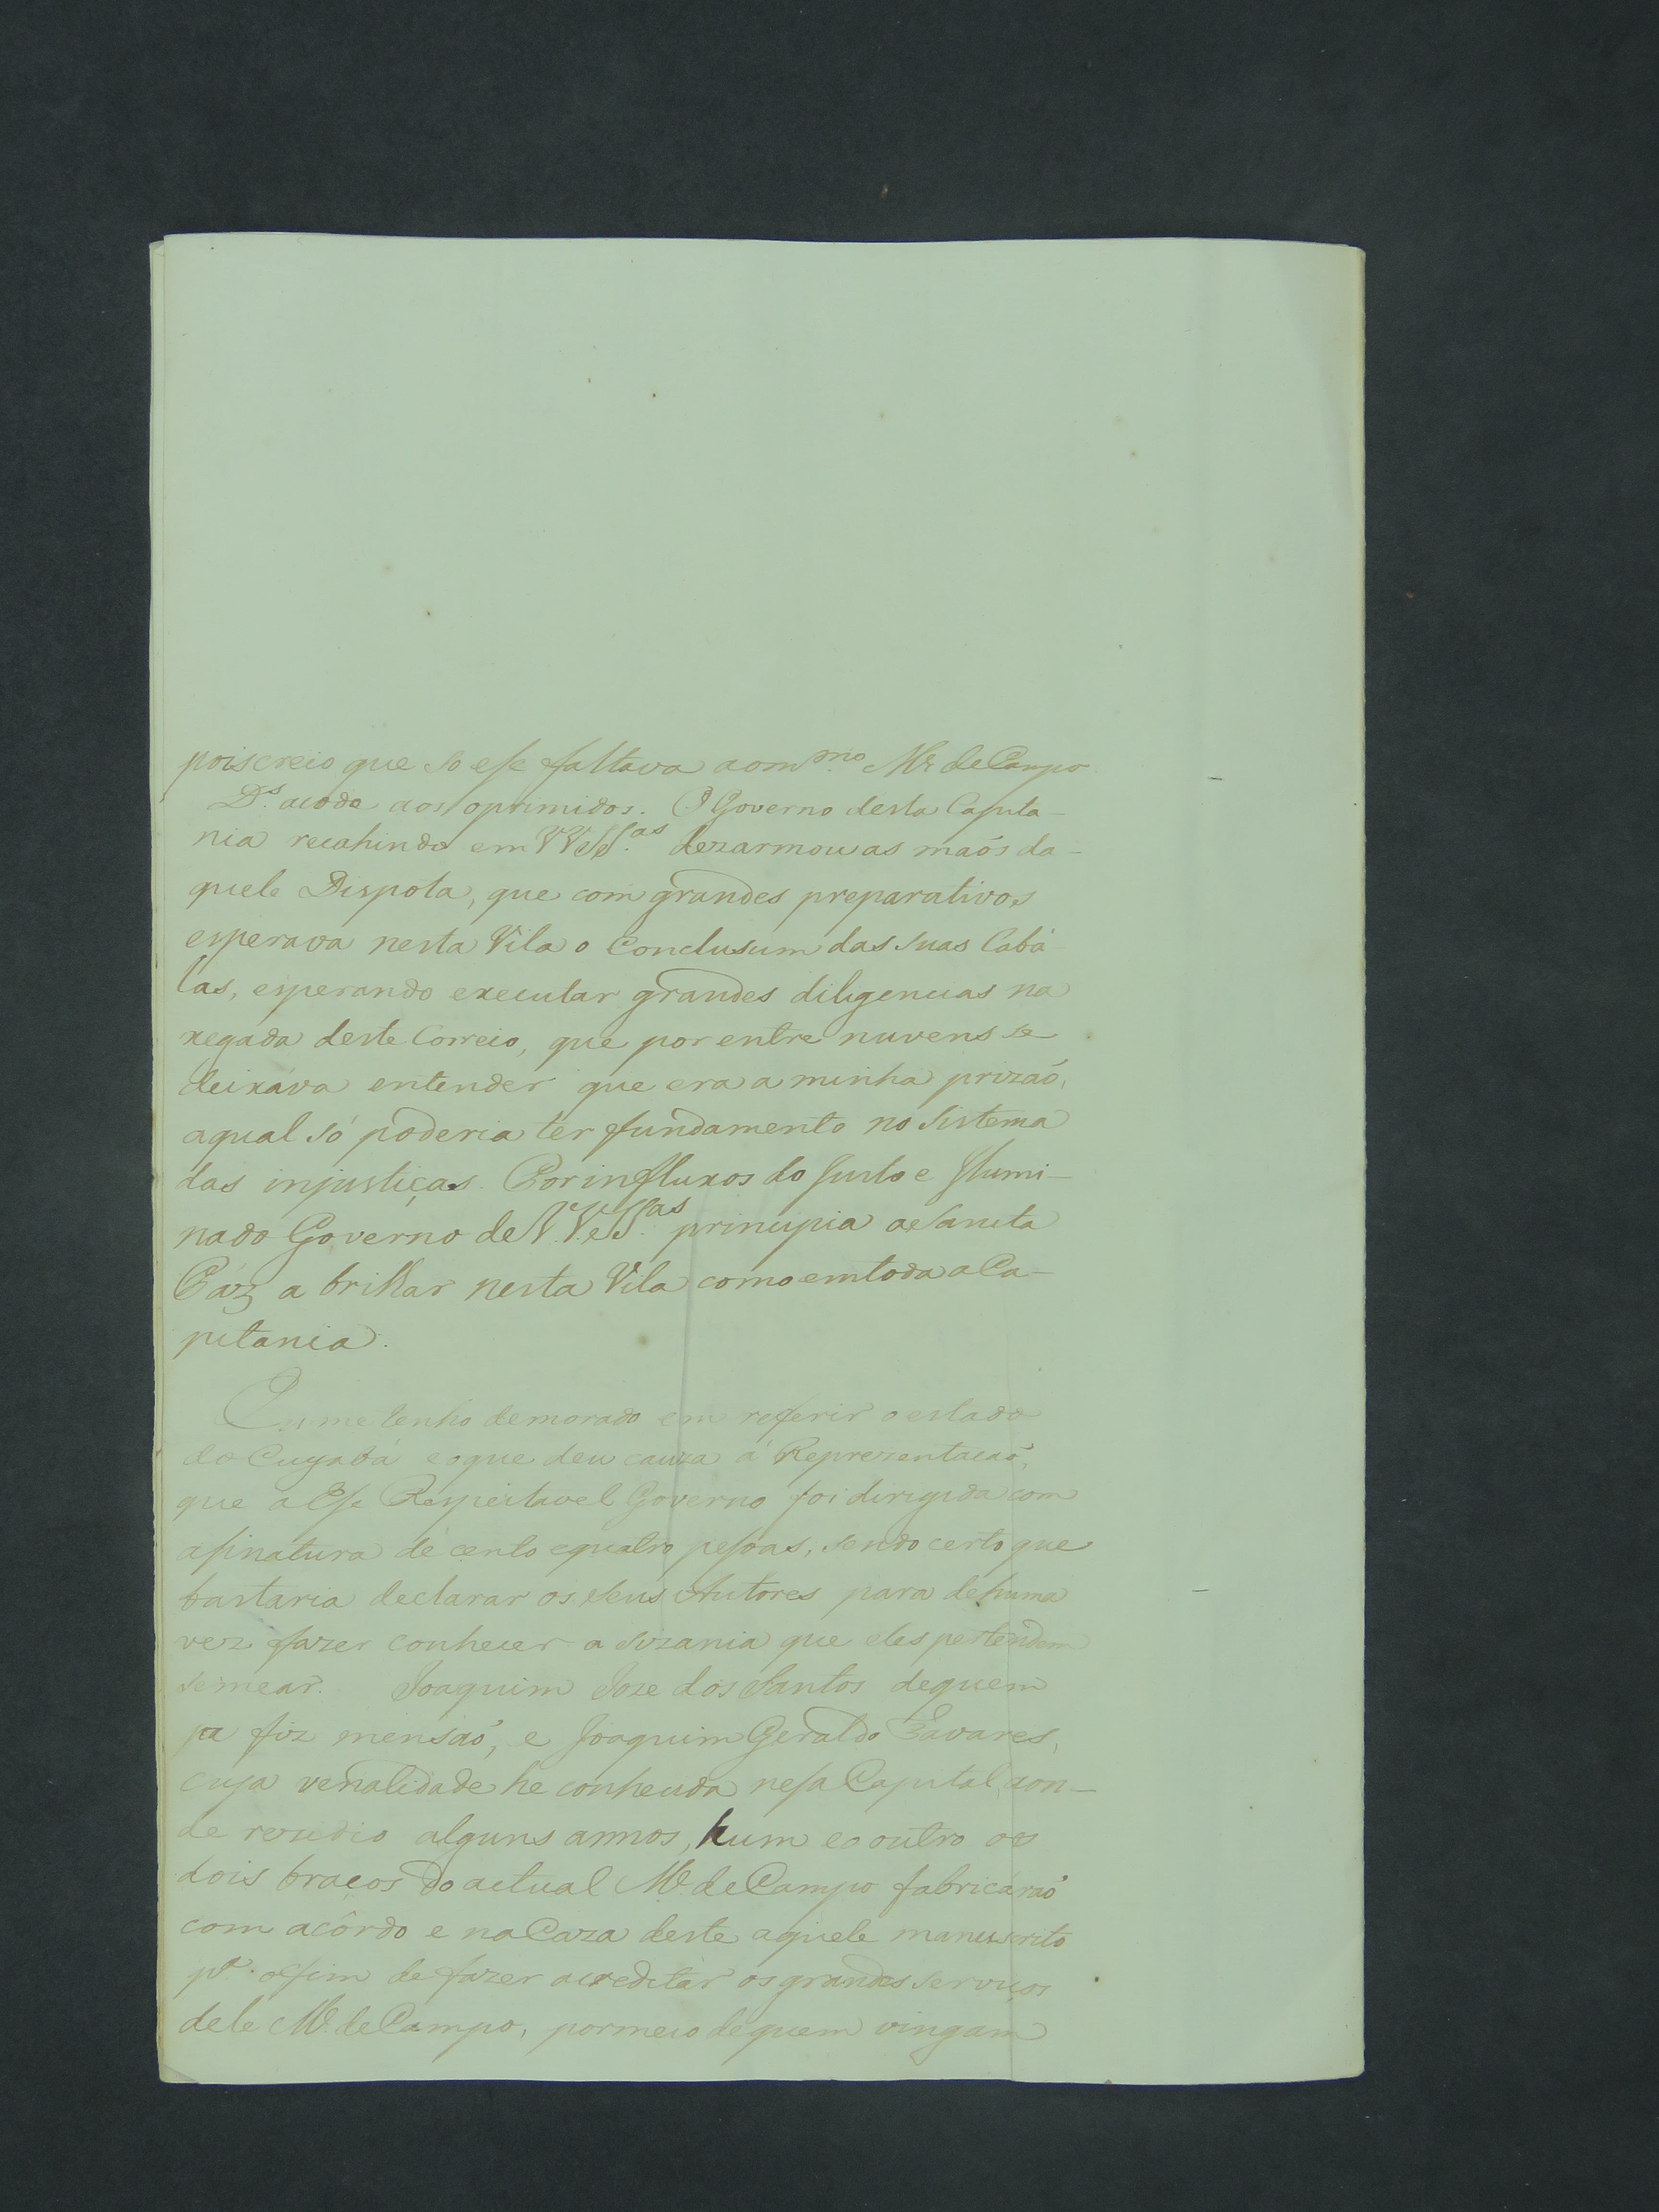 pois creio que so ese faltava ao m.mo M.e de Campo
D.s acoda aos oprimidos. O Governo desta Capita-
nia recahindo em VV SS.as dezarmou as maõs da-
quele Dispota, que com grandes preparativos
esperava nesta Vila o Conclusum das suas Cabá
las, esperando executar grandes diligencias na
xegada deste Correio, que por entre nuvens se
deixava entender que era a minha prizaõ,
a qual só poderia ter fundamento no Sistema
das injustiças. Por influxos do Justo e Ilumi-
nado Governo de V.V. SS.as principia a Sancta
Páz a brilhar nesta Vila como em toda a Ca-
pitania.
Eu me tenho demorado em referir o estado
do Cuyabá e o que deu cauza á Reprezentacaõ,
que a Ese Respeitavel Governo foi dirigida com
asinatura de cento e quatro pesoas, sendo certo que
bastaria declarar os seus Autores para de huma
vez fazer conhecer a sizania que eles pertendem
semear. Joaquim Joze dos Santos de quem
ja fiz mensaõ, e Joaquim Geraldo Tavares,
cuja venalidade he conhecida nesa Capital, aon-
de rezidio alguns annos, hum e o outro os
dois braços do actual M.e de Campo fabricáraõ
com acôrdo e na Caza deste aquele manuscrito
p.a o fim de fazer acreditar os grandes serviços
dele M.e de Campo, por meio de quem vingam